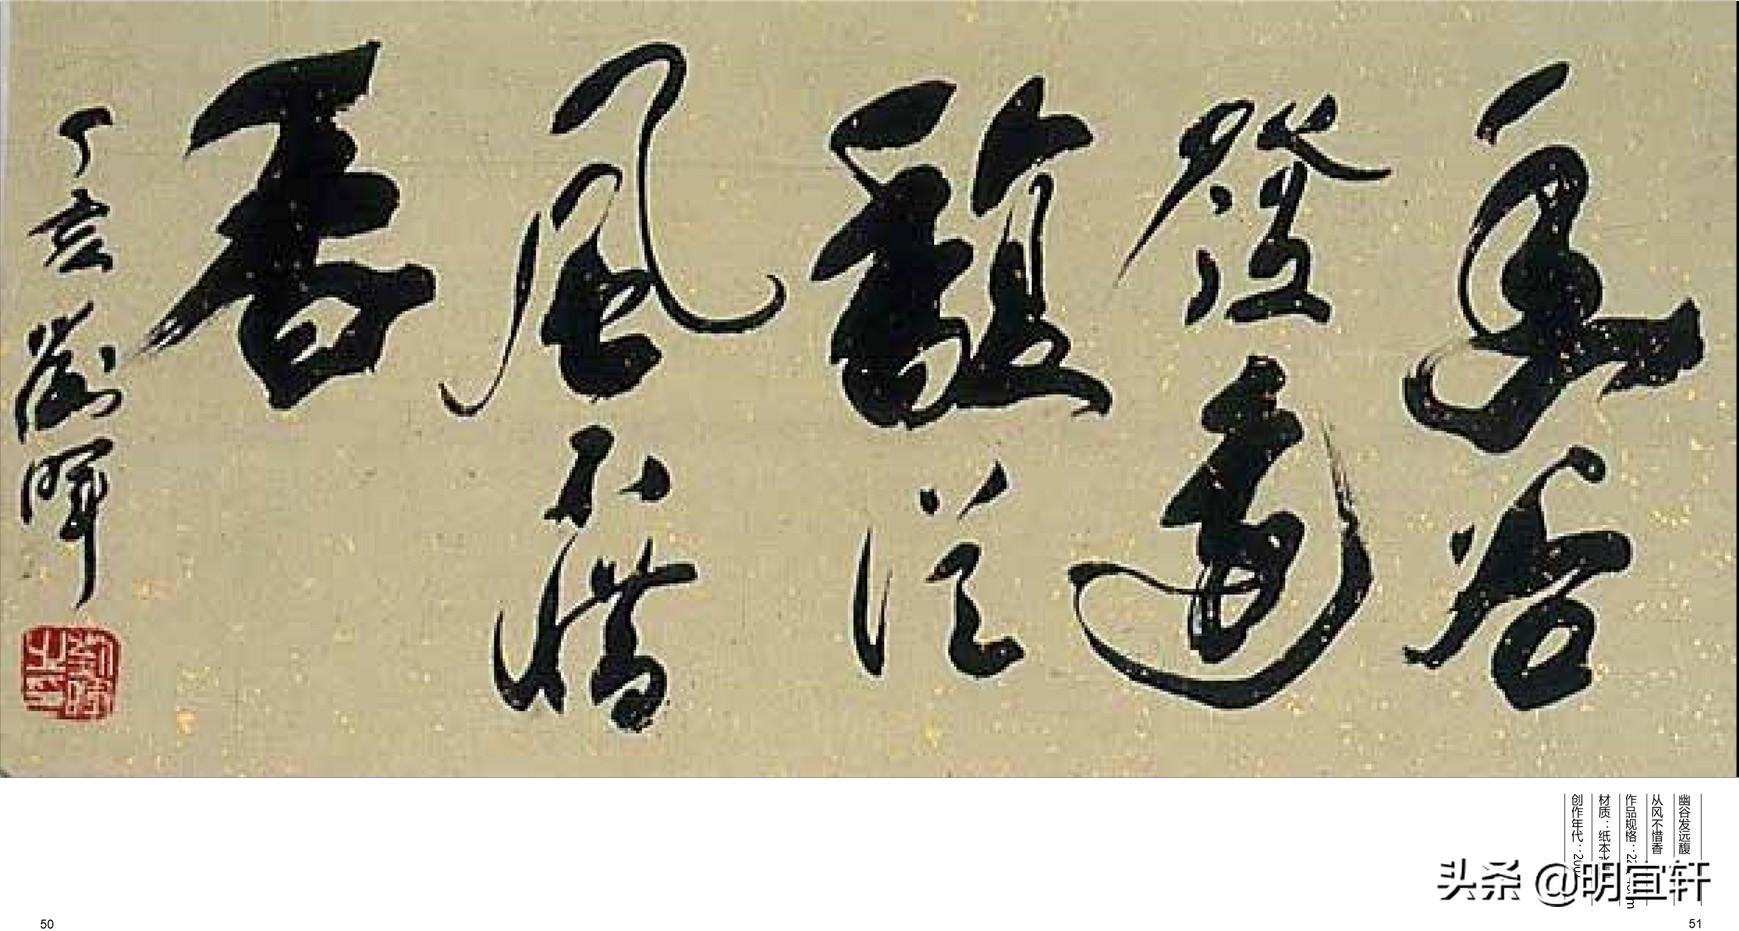 幽谷
發遠
馥從
風不惜
香
丁亥劉暉
幽谷发远馥
从风不惜香
作品规格：
材质：纸本
创作年代：
头条 @明宜轩
50
51